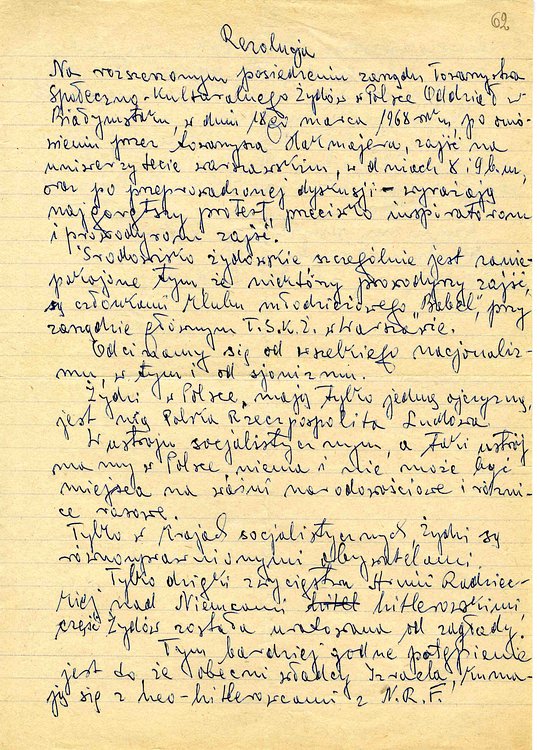 62
Rezolucja
Na rozszerzonym posiedzeniu zarządu Towarzystwa
Społeczno-Kulturalnego Żydów w Polsce Oddział w
Białymstoku, w dniu 18go marca 1968 roku, po omó-
wieniu przez towarzysza Hakmajera, zajść na
uniwersytecie warszawskim, w dniach 8 i 9 b.m,
oraz po przeprowadzonej dyskusji - wyrażają
najgorętszy protest, przeciwko inspiratorom
i prowodyrom zajść.
Środowisko żydowskie szczególnie jest zanie-
pokojone tym że niektórzy prowodyrzy zajść,
są członkami klubu młodzieżowego "Babel", przy
zarządzie głównym T.S.K.Ż. w Warszawie.
Odcinamy się od wszelkiego nacjonaliz-
mu, w tym i od sjonizmu.
Żydzi w Polsce, mają tylko jedną ojczyznę,
jest nią Polska Rzeczpospolita Ludowa
W ustroju socjalistycznym, a taki ustrój
mamy w Polsce, niema i nie może być
miejsca na waśni narodowościowe i różni-
ce rasowe.
Tylko w krajach socjalistycznych, Żydzi są
równouprawnionymi obywatelami.
Tylko dzięki zwycięstwa Armii Radziec-
kiej nad Niemcami hitlerowskimi,
część Żydów została uratowana od zagłady.
Tym bardziej godne potępienie
jest to, że obecni władcy Izraela, kuma-
ją się z neo-hitlerowcami z N.R.F.